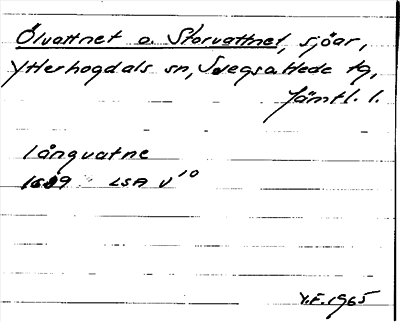 Ölvattnet o. Storvattnet, sjöar,
Ytterhogdals sn, Svegs o. Hede tg,
Jämtl. l.
långvatne
1689 LSA V¹⁰
Y.F. 1965